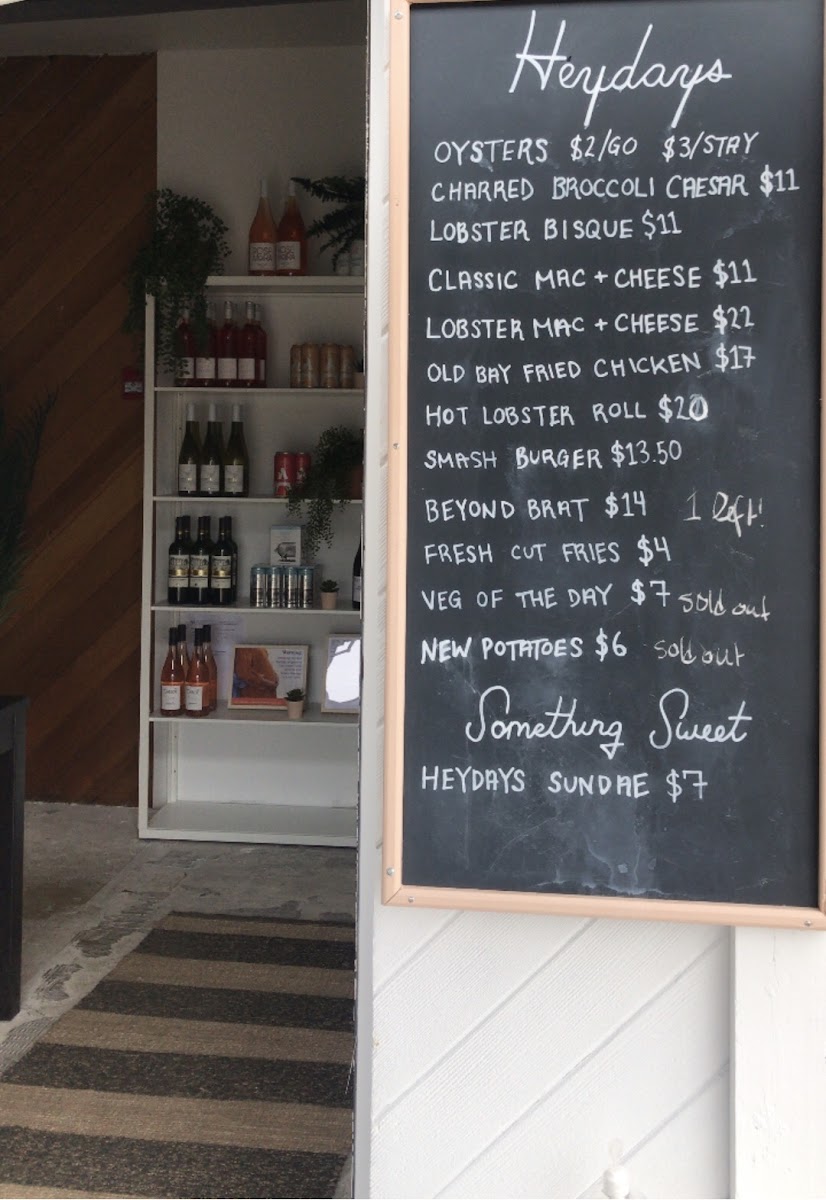 Heydays
OYSTERS $2/GO $3/STAY
CHARRED BROCCOLI CAESAR $11
LOBSTER BISQUE $11
CLASSIC MAC + CHEESE $11
LOBSTER MAC + CHEESE $22
OLD BAY FRIED CHICKEN $17
HOT LOBSTER ROLL $20
SMASH BURGER $13.50
BEYOND BRAT $14 1 left!
FRESH CUT FRIES $4
VEG OF THE DAY $7 sold out
NEW POTATOES $6 sold out
Something Sweet
HEYDAYS SUNDAE $7